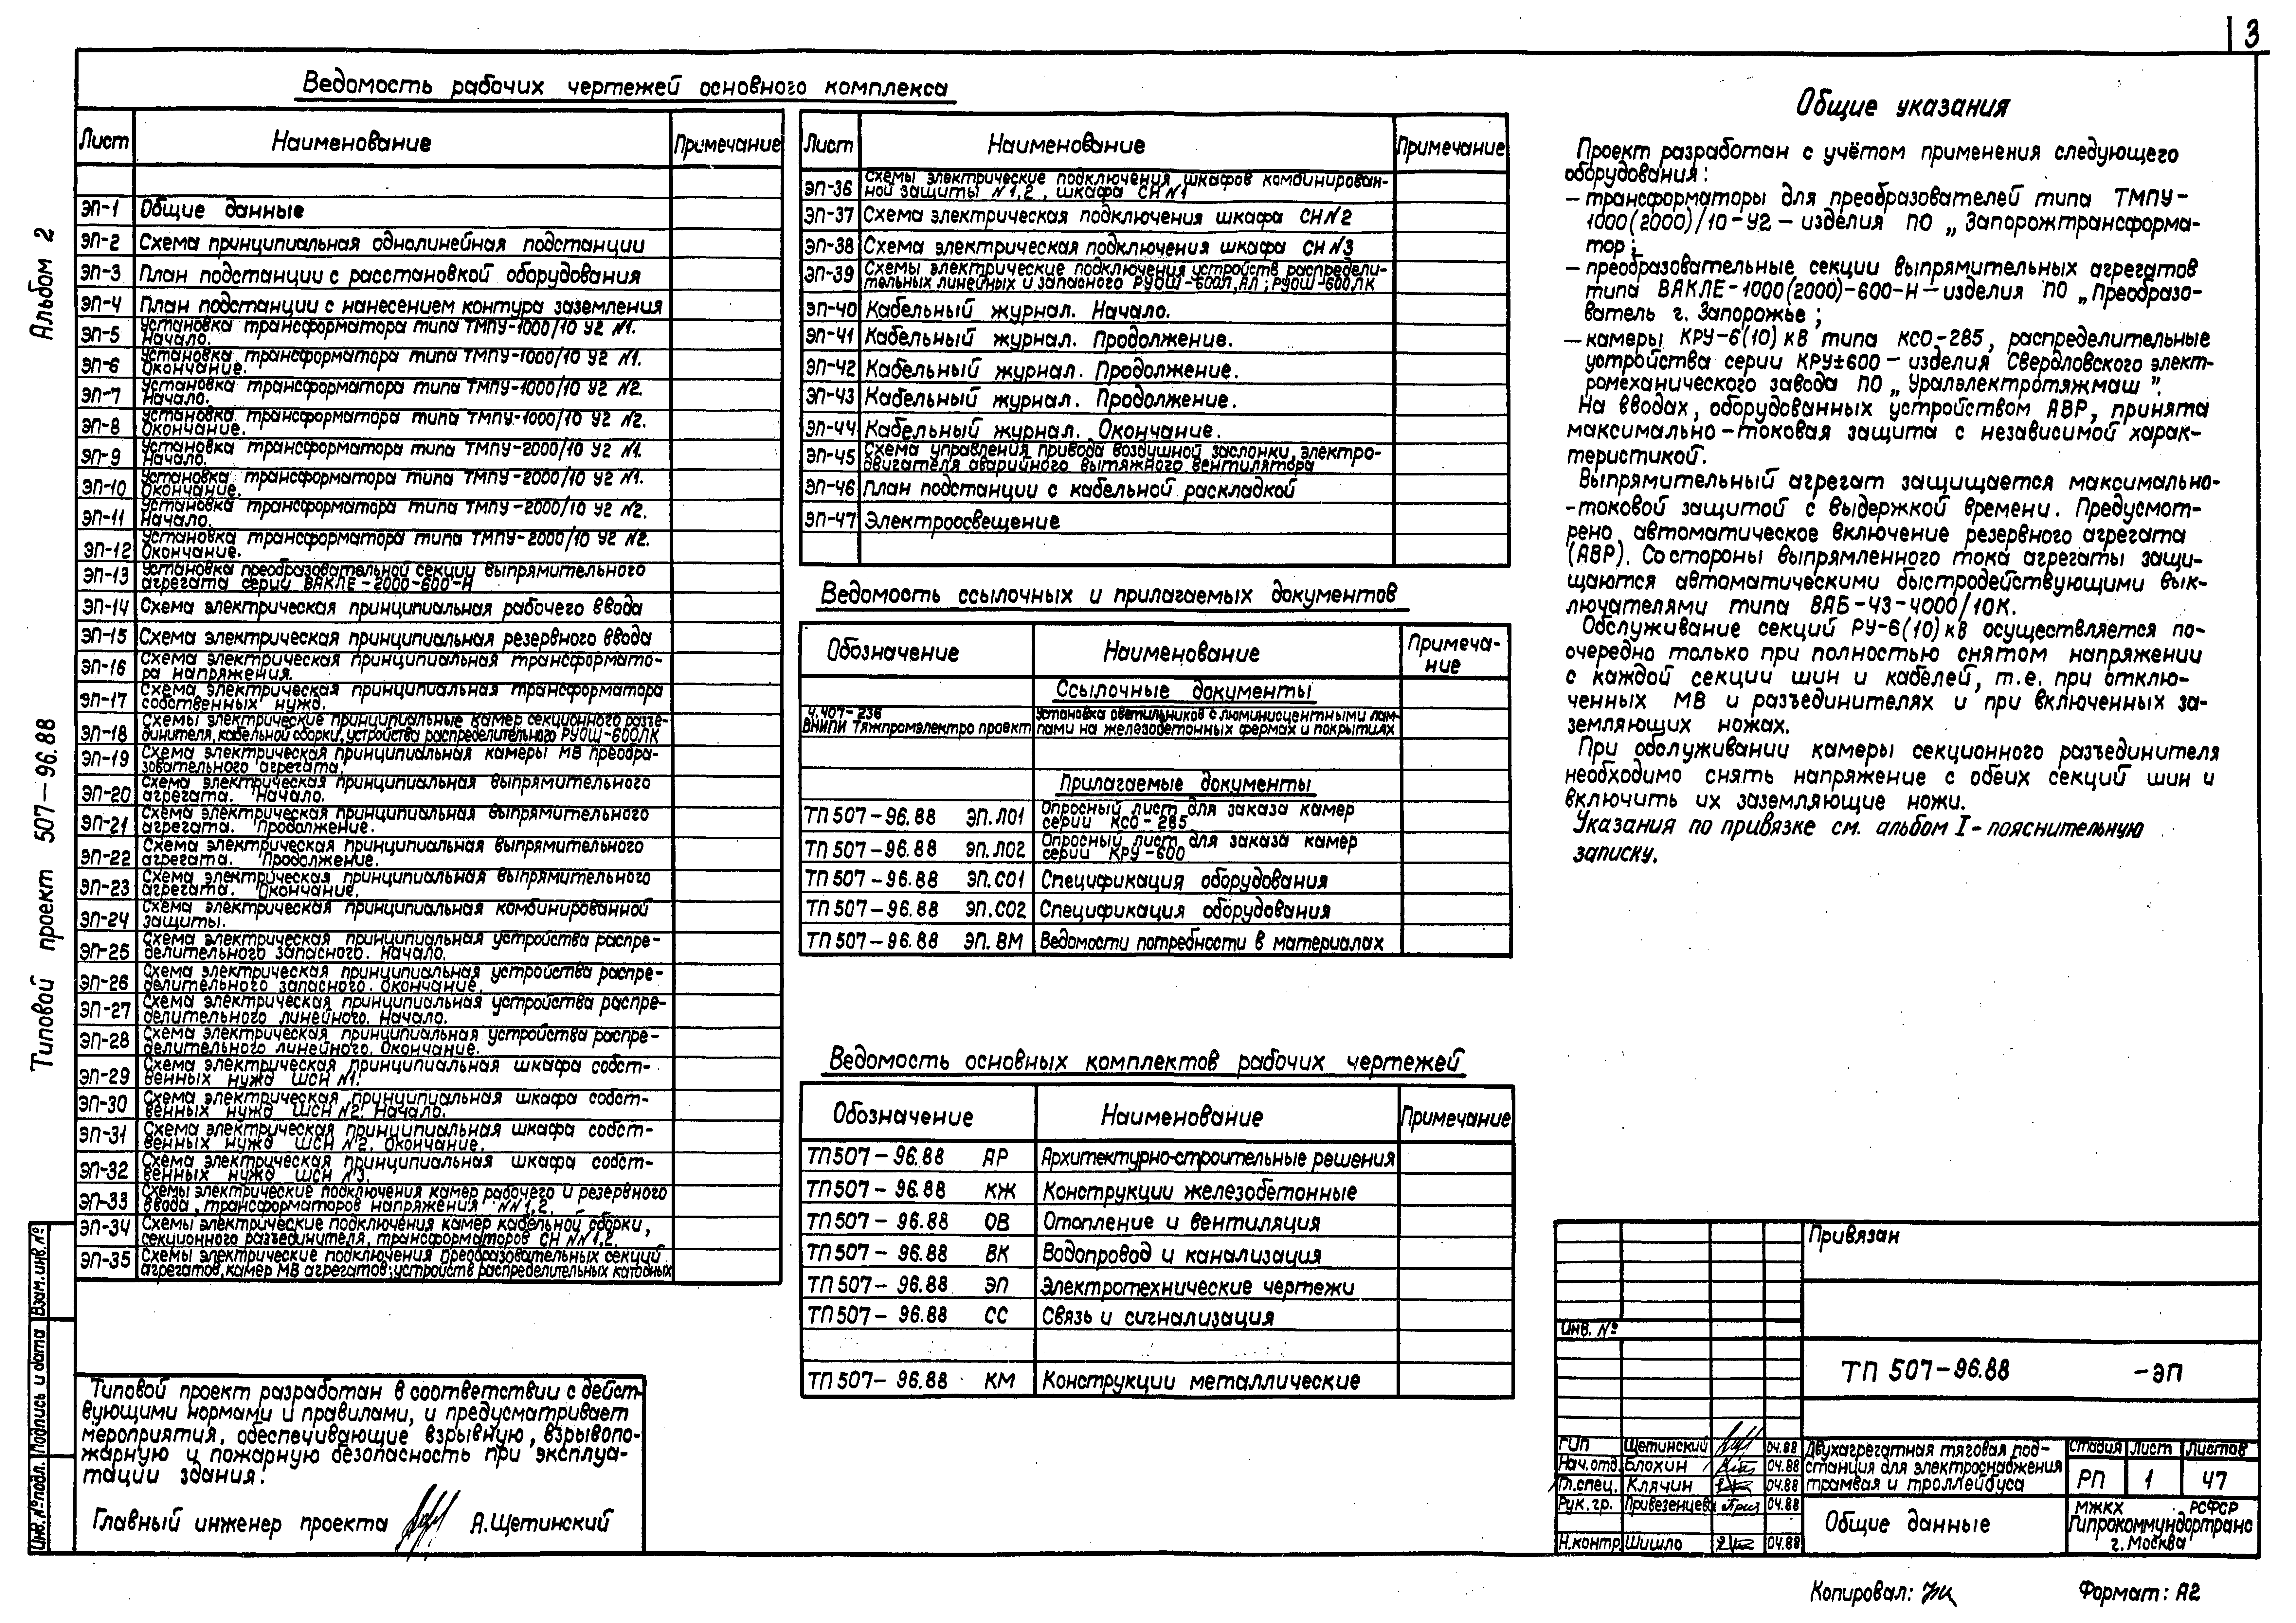 3
Альбом 2
Типовой проект 507-96.88
Ведомость рабочих чертежей основного комплекса
Лист Наименование Примечание
ЭП-1 Общие данные
ЭП-2 Схема принципиальная однолинейная подстанции
ЭП-3 План подстанции с расстановкой оборудования
ЭП-4 План подстанции с нанесением контура заземления
ЭП-5 Установка трансформатора типа ТМПУ-1000/10 У2 №1.
Начало.
ЭП-6 Установка трансформатора типа ТМПУ-1000/10 У2 №1.
Окончание.
ЭП-7 Установка трансформатора типа ТМПУ-1000/10 У2 №2.
Начало.
ЭП-8 Установка трансформатора типа ТМПУ-1000/10 У2 №2.
Окончание.
ЭП-9 Установка трансформатора типа ТМПУ-2000/10 У2 №1.
Начало.
ЭП-10 Установка трансформатора типа ТМПУ-2000/10 У2 №1.
Окончание.
ЭП-11 Установка трансформатора типа ТМПУ-2000/10 У2 №2.
Начало.
ЭП-12 Установка трансформатора типа ТМПУ-2000/10 У2 №2.
Окончание.
ЭП-13 Установка преобразовательной секции выпрямительного
агрегата серии ВАКЛЕ-2000-600-Н
ЭП-14 Схема электрическая принципиальная рабочего ввода
ЭП-15 Схема электрическая принципиальная резервного ввода
ЭП-16 Схема электрическая принципиальная трансформато-
ра напряжения.
ЭП-17 Схема электрическая принципиальная трансформатора
собственных нужд.
ЭП-18 Схемы электрические принципиальные камер секционного разъе-
динителя, кабельной сборки, устройства распределительного РУОШ-600ЛК
ЭП-19 Схема электрическая принципиальная камеры МВ преобра-
зовательного агрегата.
ЭП-20 Схема электрическая принципиальная выпрямительного
агрегата. Начало.
ЭП-21 Схема электрическая принципиальная выпрямительного
агрегата. Продолжение.
ЭП-22 Схема электрическая принципиальная выпрямительного
агрегата. Продолжение.
ЭП-23 Схема электрическая принципиальная выпрямительного
агрегата. Окончание.
ЭП-24 Схема электрическая принципиальная комбинированной
защиты.
ЭП-25 Схема электрическая принципиальная устройства распре-
делительного запасного. Начало.
ЭП-26 Схема электрическая принципиальная устройства распре-
делительного запасного. Окончание.
ЭП-27 Схема электрическая принципиальная устройства распре-
делительного линейного. Начало.
ЭП-28 Схема электрическая принципиальная устройства распре-
делительного линейного. Окончание.
ЭП-29 Схема электрическая принципиальная шкафа собст-
венных нужд ШСН №1.
ЭП-30 Схема электрическая принципиальная шкафа собст-
венных нужд ШСН №2. Начало.
ЭП-31 Схема электрическая принципиальная шкафа собст-
венных нужд ШСН №2. Окончание.
ЭП-32 Схема электрическая принципиальная шкафа собст-
венных нужд ШСН №3.
ЭП-33 Схемы электрические подключения камер рабочего и резервного
ввода, трансформаторов напряжения №№1,2.
ЭП-34 Схемы электрические подключения камер кабельной сборки,
секционного разъединителя, трансформаторов СН №№1,2.
ЭП-35 Схемы электрические подключения преобразовательных секций
агрегатов, камер МВ агрегатов; устройств распределительных катодных
Типовой проект разработан в соответствии с дейст-
вующими нормами и правилами, и предусматривает
мероприятия, обеспечивающие взрывную, взрывопо-
жарную и пожарную безопасность при эксплуа-
тации здания.
Главный инженер проекта А.Щетинский
Взам.инв.№
Подпись и дата
Инв.№подл.
Лист Наименование Примечание
ЭП-36 Схемы электрические подключения шкафов комбинирован-
ной защиты №1,2, шкафа СН №1
ЭП-37 Схема электрическая подключения шкафа СН №2
ЭП-38 Схема электрическая подключения шкафа СН №3
ЭП-39 Схемы электрические подключения устройств распредели-
тельных линейных и запасного РУОШ-600Л, АЛ; РУОШ-600ЛК
ЭП-40 Кабельный журнал. Начало.
ЭП-41 Кабельный журнал. Продолжение.
ЭП-42 Кабельный журнал. Продолжение.
ЭП-43 Кабельный журнал. Продолжение.
ЭП-44 Кабельный журнал. Окончание.
ЭП-45 Схема управления привода воздушной заслонки, электро-
двигателя аварийного вытяжного вентилятора
ЭП-46 План подстанции с кабельной раскладкой
ЭП-47 Электроосвещение
Ведомость ссылочных и прилагаемых документов
Обозначение Наименование Примеча-
ние
Ссылочные документы
4.407-236 Установка светильников с люминисцентными лам-
ВНИПИ Тяжпромэлектропроект пами на железобетонных фермах и покрытиях
Прилагаемые документы
ТП 507-96.88 ЭП.ЛО1 Опросный лист для заказа камер
серии КСО-285
ТП 507-96.88 ЭП.ЛО2 Опросный лист для заказа камер
серии КРУ-600
ТП 507-96.88 ЭП.СО1 Спецификация оборудования
ТП 507-96.88 ЭП.СО2 Спецификация оборудования
ТП 507-96.88 ЭП.ВМ Ведомости потребности в материалах
Ведомость основных комплектов рабочих чертежей
Обозначение Наименование Примечание
ТП 507-96.88 АР Архитектурно-строительные решения
ТП 507-96.88 КЖ Конструкции железобетонные
ТП 507-96.88 ОВ Отопление и вентиляция
ТП 507-96.88 ВК Водопровод и канализация
ТП 507-96.88 ЭП Электротехнические чертежи
ТП 507-96.88 СС Связь и сигнализация
ТП 507-96.88 КМ Конструкции металлические
Общие указания
Проект разработан с учётом применения следующего
оборудования:
-трансформаторы для преобразователей типа ТМПУ-
1000(2000)/10-У2-изделия ПО „Запорожтрансформа-
тор;
-преобразовательные секции выпрямительных агрегатов
типа ВАКЛЕ-1000(2000)-600-Н-изделия ПО „Преобразо-
ватель г. Запорожье;
-камеры КРУ-6(10)кВ типа КСО-285, распределительные
устройства серии КРУ±600-изделия Свердловского элект-
ромеханического завода ПО „Уралэлектротяжмаш".
На вводах, оборудованных устройством АВР, принята
максимально-токовая защита с независимой харак-
теристикой.
Выпрямительный агрегат защищается максимально-
-токовой защитой с выдержкой времени. Предусмот-
рено автоматическое включение резервного агрегата
(АВР). Со стороны выпрямленного тока агрегаты защи-
щаются автоматическими быстродействующими вык-
лючателями типа ВАБ-43-4000/10К.
Обслуживание секций РУ-6(10)кВ осуществляется по-
очередно только при полностью снятом напряжении
с каждой секции шин и кабелей, т.е. при отклю-
ченных МВ и разъединителях и при включенных за-
земляющих ножах.
При обслуживании камеры секционного разъединителя
необходимо снять напряжение с обеих секций шин и
включить их заземляющие ножи.
Указания по привязке см. альбом I-пояснительную
записку.
Привязан
Инв. №
ТП 507-96.88 -ЭП
ГИП Щетинский 04.88
Нач.отд. Блохин 04.88
Гл.спец. Клячин 04.88
Рук.гр. Привезенцев 04.88
Н.контр Шишло 04.88
Двухагрегатная тяговая под-
станция для электроснабжения
трамвая и троллейбуса
Стадия Лист Листов
РП 1 47
Общие данные
МЖКХ РСФСР
Гипрокоммундортранс
г.Москва
Копировал:
Формат: А2